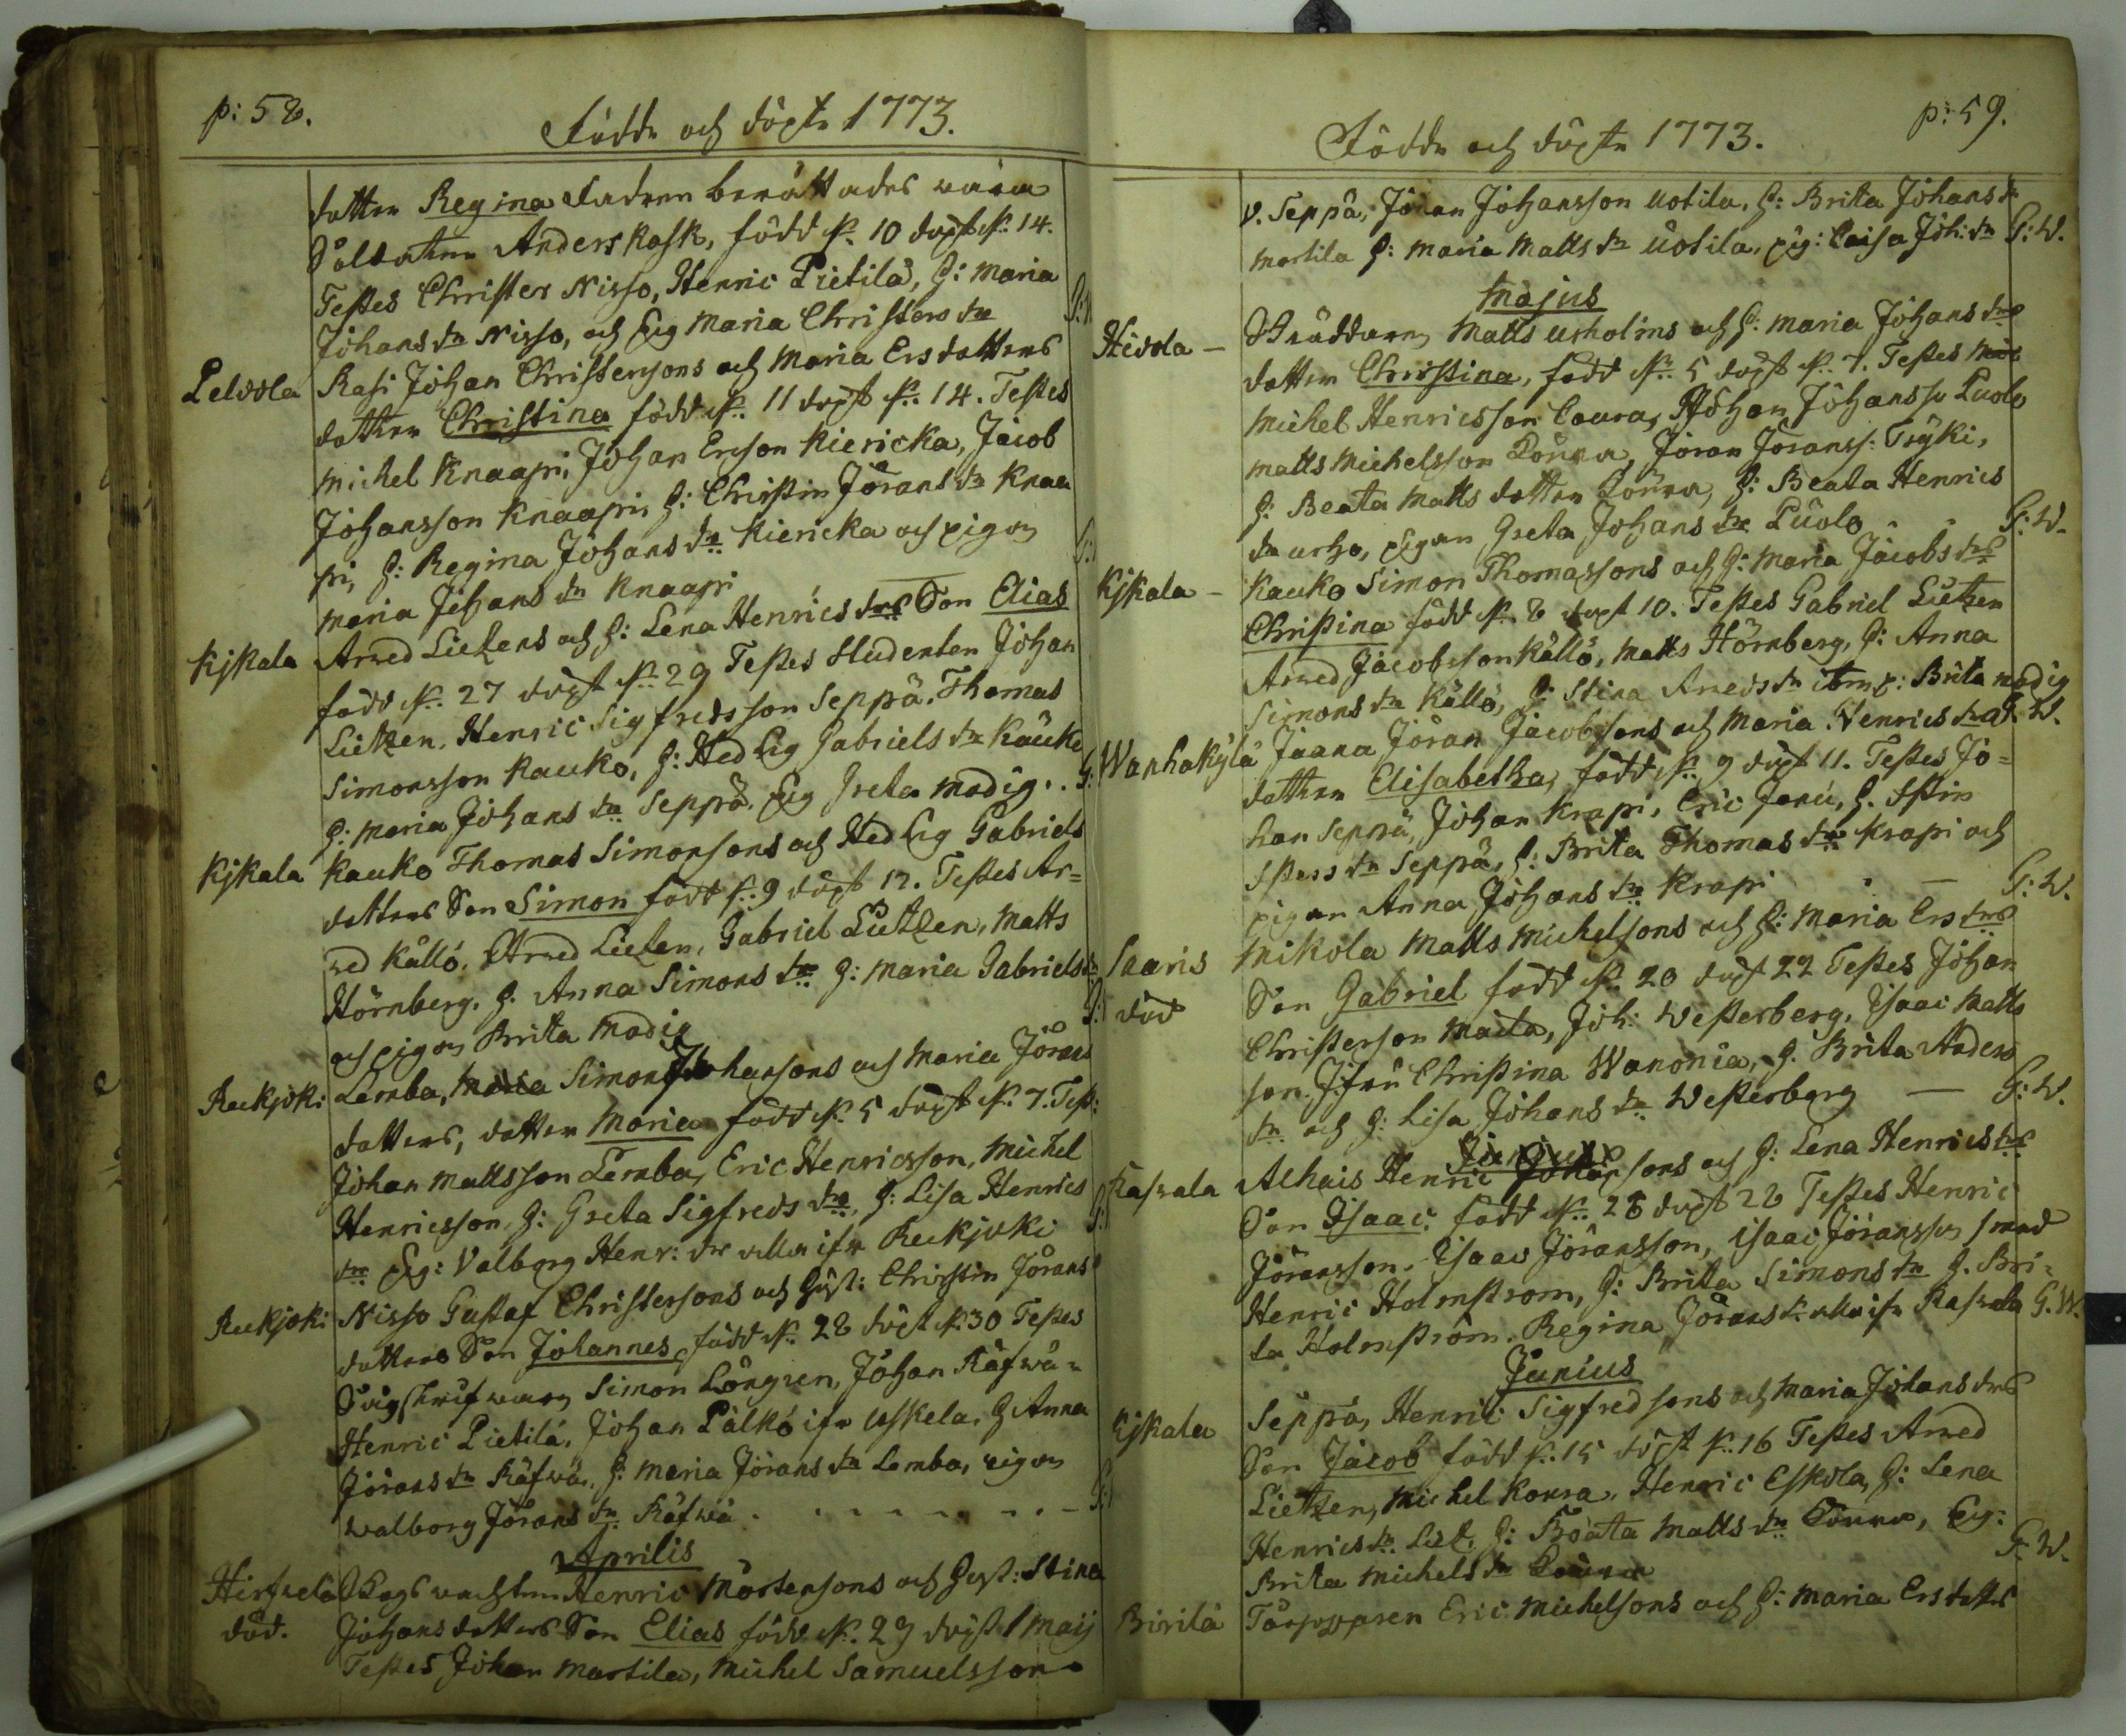 p: 58.
Födde och döpte 1773.
dotter Regina fadren berättades vara
Soldaten Anders Rask, född d. 10 döpt d. 14.
Testes Christer Nisso, Henric Pietilä, h: Maria
Johans dr Nisso, och Pig Maria Christers dr
Peldola Rasi Johan Christersons och Maria Ersdotters
dotter Christina född d. 11 döpt d. 14. Testes
Michel Knaapi, Johan Erson Kiericka, Jacob
Johansson Knaapi, h: Christin Jörans dr Knaa
pi, h: Regina Johans dr Kiericka och pigan
Maria Johans dr Knaapi
Kjkala Arved Lietzens och h: Lena Henrics drs Son Elias
född d. 27 döpt d. 29 Testes Studenten Johan
Lietzen, Henric Sigfredsson Seppä, Thomas
Simonsson Kauko, h: Hedvig Gabriels dr Kauko
h: Maria Johans dr Seppä, Pig Greta Modig. . G:
Kjkala Kauko Thomas Simonsons och Hedvig Gabriels
dotters Son Simon född d. 9 döpt 12. Testes Ar=
ved Källö, Arved Lietzen, Gabriel Lietzen, Matts
Hörnberg, h. Anna Simons dr h: Maria Gabriels dr
och pigan Brita Modig
Reckjoki Lemba, Simon Johansons och Maria Jörans
dotters, dotter Maria född d. 5 döpt d. 7. Test:
Johan Mattsson Lemba, Eric Henricsson, Michel
Henricsson, h: Greta Sigfreds dr, h: Lisa Henrics
dr Pig: Valborg Henr: dr alla ifr Reckjoki
Reckjoki Nisso Gustaf Christersons och Hust: Christin Jörans
dotters Son Johannes, född d. 28 döpt d. 30 Testes
Simon Löngren, Johan Räfwä
Henric Pietilä, Johan Pälkö ifr Uskela, h Anna
Jörans dr Räfwä, h: Maria Jörans dr Lemba, pigan
Walborg Jörans dr Räfwä . . . . . . .
Aprilis
Hirfvelä Henric Mårtensons och Hust: Stina
död. Johansdotters Son Elias född d. 29 döpt 1 Maij
Testes Johan Martila, Michel Samuelsson
p: 59.
Födde och döpte 1773.
v. Seppä, Jöran Johansson Uotila, h: Brita Johans dr
Martila h: Maria Matts dr Uotila, pig: Caisa Joh: dr G: W.
Majus
Hedola – Skräddaren Matts Urholms och h: Maria Johans drs
dotter Christina, född d. 5 döpt d. 7. Testes
Michel Henricsson Coura, Johan Johansso Puolo
Matts Michelsson Koura, Jöran Jöranss: Tryki,
h: Beata Matts dotter Koura, h: Beata Henrics
dr Urho, pigan Greta Johans dr Puolo . . G: W.
Kjkala – Kauko Simon Thomassons och h: Maria Jacobs drs
Christina född d. 8 döpt 10. Testes Gabriel Lietzen
Arved Jacobsson Källö, Matts Hörnberg, h: Anna
Simons dr Källö, h: Stina Arveds dr ibm, p: Brita Modig
Wanhakylä Jaana Jöran Jacobsons och Maria Henrics drs G. W.
dotter Elisabetha, född d. 9 döpt 11. Testes Jo=
han Seppä, Johan Krapi, Eric Janu, h. Stin
Stass dr Seppä, h: Brita Thomas dr Krapi och
pigan Anna Johans dr Krapi – G: W.
Saaris Mikola Matts Michelsons och h: Maria Ers drs
död Son Gabriel född d. 20 döpt 22 Testes Johan
Christerson Maita, Joh: Westerberg, Isaac Matts
son. Jfru Christina Wanonia, h. Brita Anders
dr och h: Lisa Johans dr Westerberg – G: W.
Kaskala Alhais Henric Johansons och h: Lena Henrics drs
Son Isaac född d. 26 döpt 28 Testes Henric
Jöransson, Isaac Jöransson, Isaac Jöransson smed
Henric Holmström, h: Brita Simons dr h. Bri=
ta Holmström. Regina Jörans dr alla ifr Kaskala G. W.
Junius
Kjkala Seppä, Henric Sigfredsons och Maria Johans drs
Son Jacob född d. 15 döpt d. 16 Testes Arved
Lietzen, Michel Koura, Henric Eskola, h: Lena
Henrics dr Liet, h: Beata Matts dr Koura, Pig:
Brita Michels dr Koura G. W.
Pirilä Törpparen Eric Michelsons och h: Maria Ersdotters